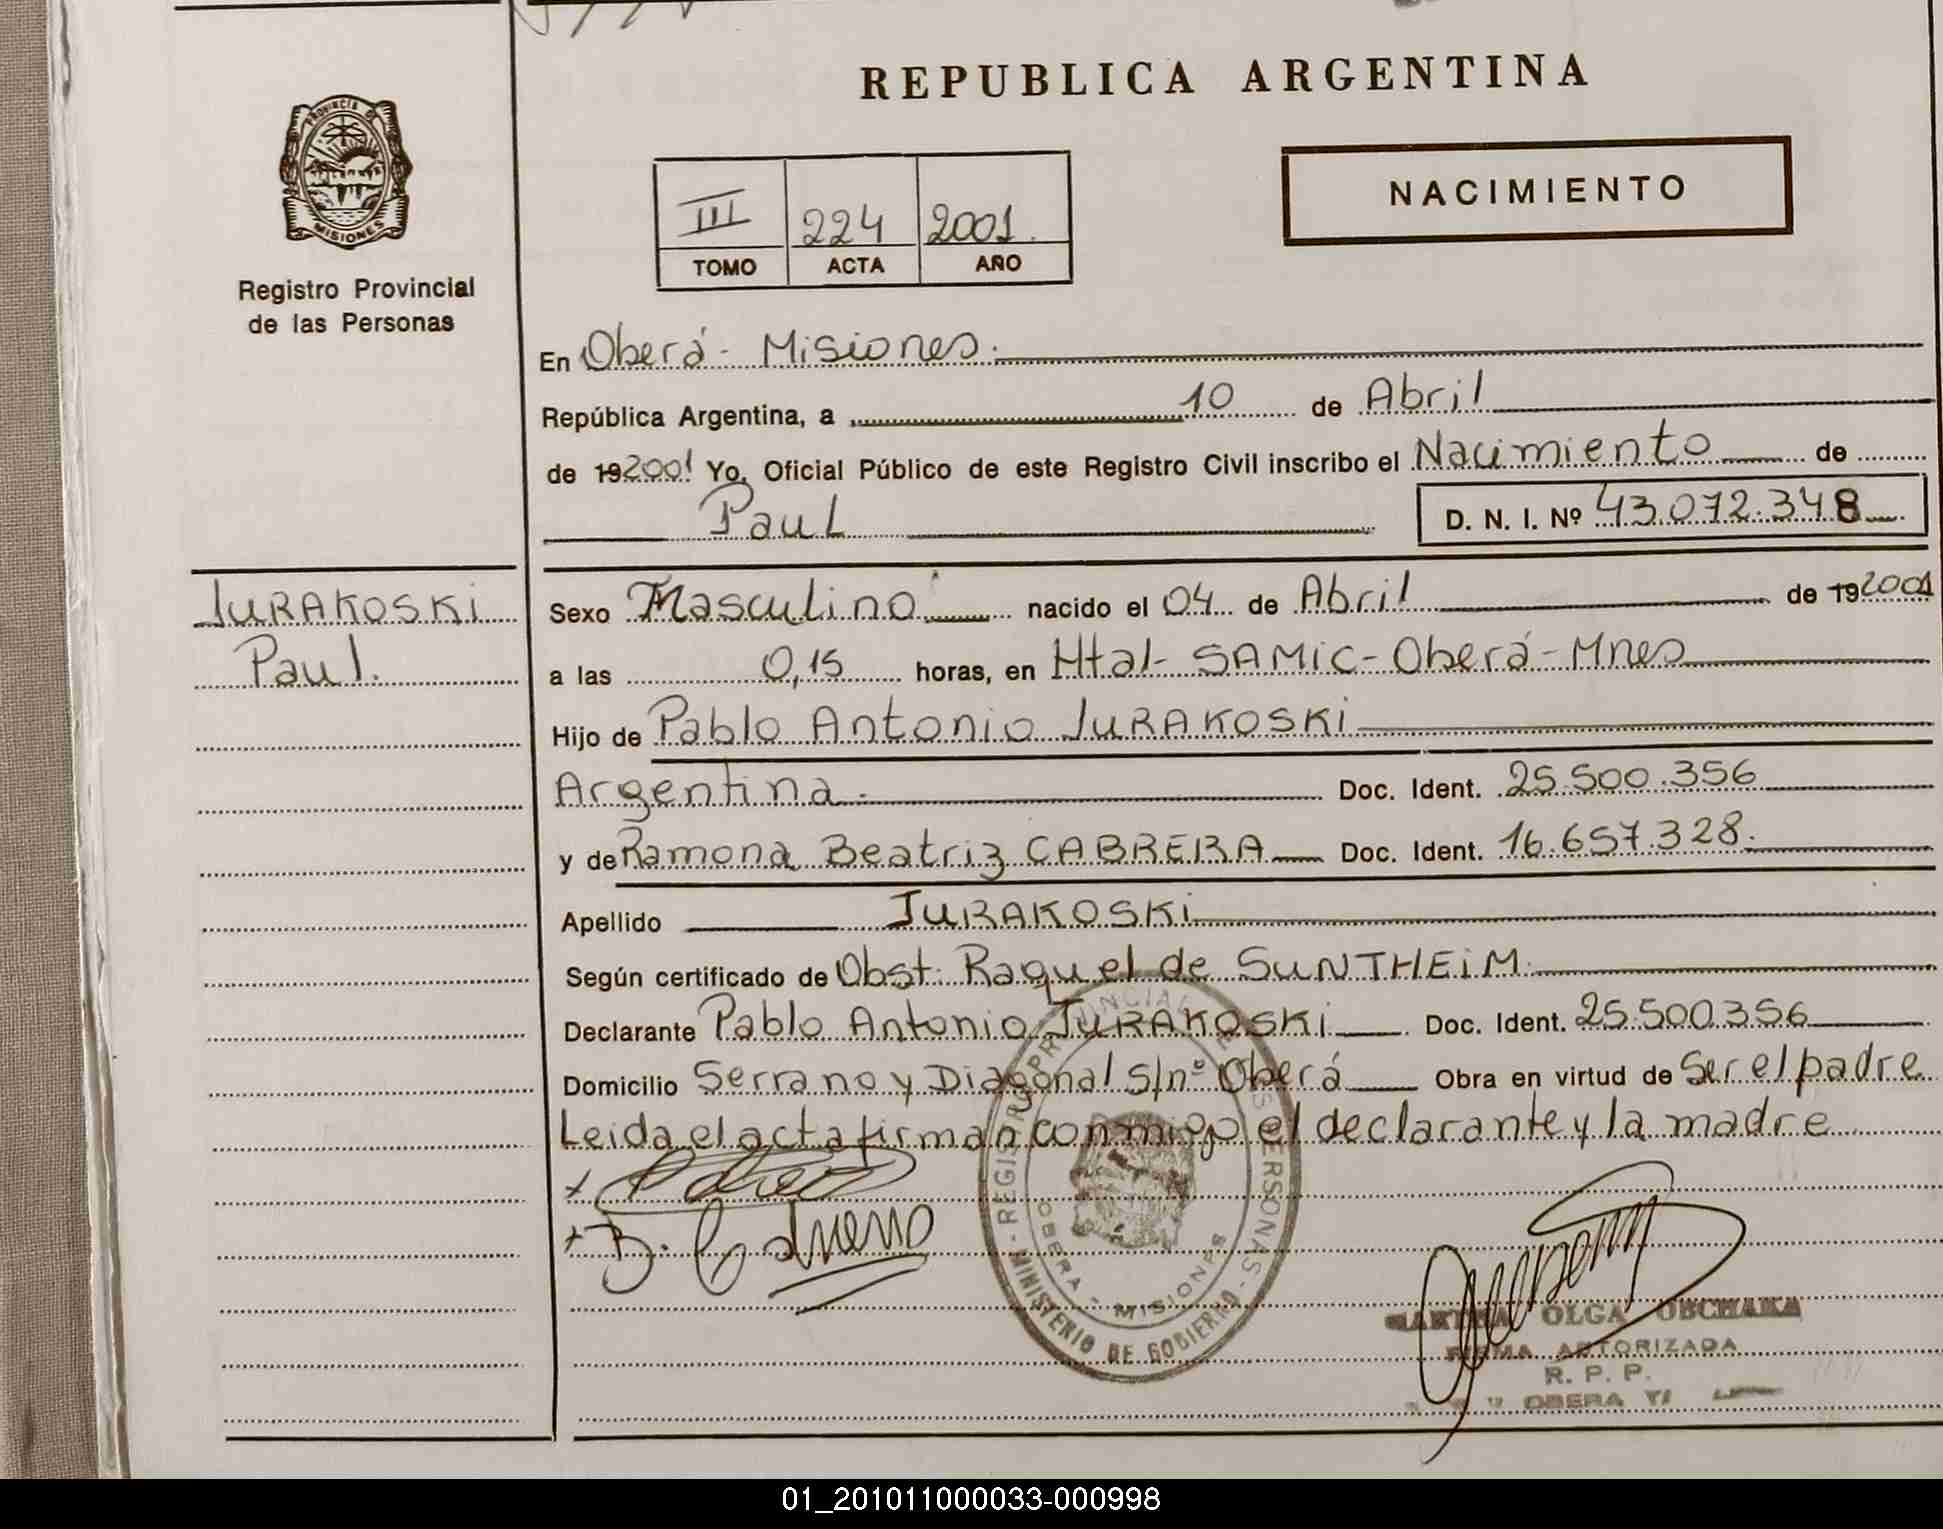 REPUBLICA ARGENTINA
PROVINCIA DE
MISIONES
Registro Provincial
de las Personas
III 224 2001.
TOMO ACTA AÑO
NACIMIENTO
En Oberá - Misiones.
República Argentina, a 10 de Abril
de 19 2001 Yo, Oficial Público de este Registro Civil inscribo el Nacimiento de
Paul D. N. I. Nº 43.072.348
JURAKOSKI
Paul.
Sexo Masculino nacido el 04 de Abril de 19 2001
a las 0,15 horas, en Htal- SAMIC - Oberá - Mnes
Hijo de Pablo Antonio JURAKOSKI
Argentina. Doc. Ident. 25.500.356
y de Ramona Beatriz CABRERA Doc. Ident. 16.657.328.
Apellido JURAKOSKI
Según certificado de Obst. Raquel de SUNTHEIM.
Declarante Pablo Antonio JURAKOSKI Doc. Ident. 25.500.356
Domicilio Serrano y Diagonal S/nº Oberá Obra en virtud de Ser el padre
Leida el acta firman conmigo el declarante y la madre
B. Cabrera
REGISTRO PROVINCIAL DE LAS PERSONAS - MINISTERIO DE GOBIERNO -
OBERA - MISIONES
OLGA OBCHAKA
FIRMA AUTORIZADA
R. P. P.
OBERA
01_201011000033-000998